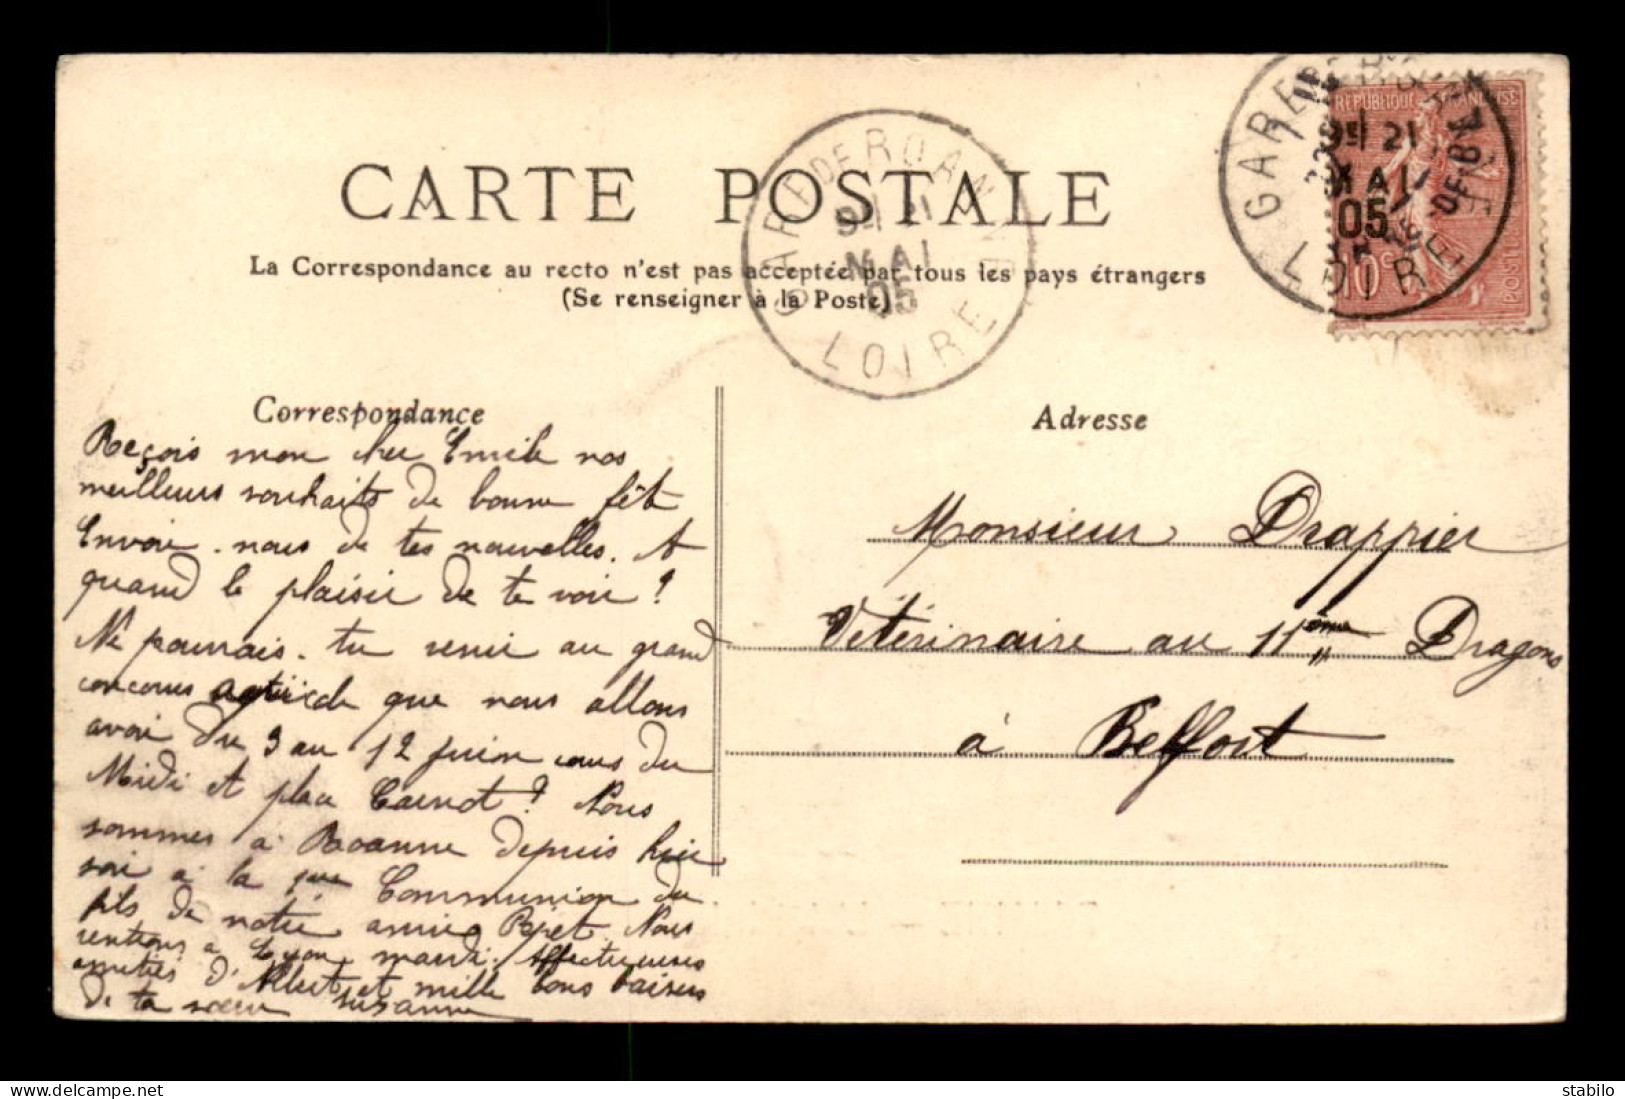 CARTE POSTALE
La Correspondance au recto n'est pas acceptée par tous les pays étrangers
(Se renseigner à la Poste)
GARE DE ROANNE
9H 21
MAI
05
LOIRE
REPUBLIQUE FRANÇAISE
10 c
POSTES
GARE
9H 21
MAI
05
LOIRE
Correspondance
Reçois mon cher Emile nos
meilleurs souhaits de bonne fêt
Envoie-nous de tes nouvelles. A
quand le plaisir de te voir ?
Ne pourrais-tu venir au grand
concours agricole que nous allons
avoir du 3 au 12 juin cours du
Midi et place Carnot ? Nous
sommes à Roanne depuis hier
soir à la 1ère Communion du
fils de notre amie Nous
rentrons à Lyon mardi. Affectueuses
amitiés d'Albert et mille bons baisers
de ta sœur Suzanne
Adresse
Monsieur Drappier
Vétérinaire au 11ème Dragons
à Belfort
delcampe.net
stabilo